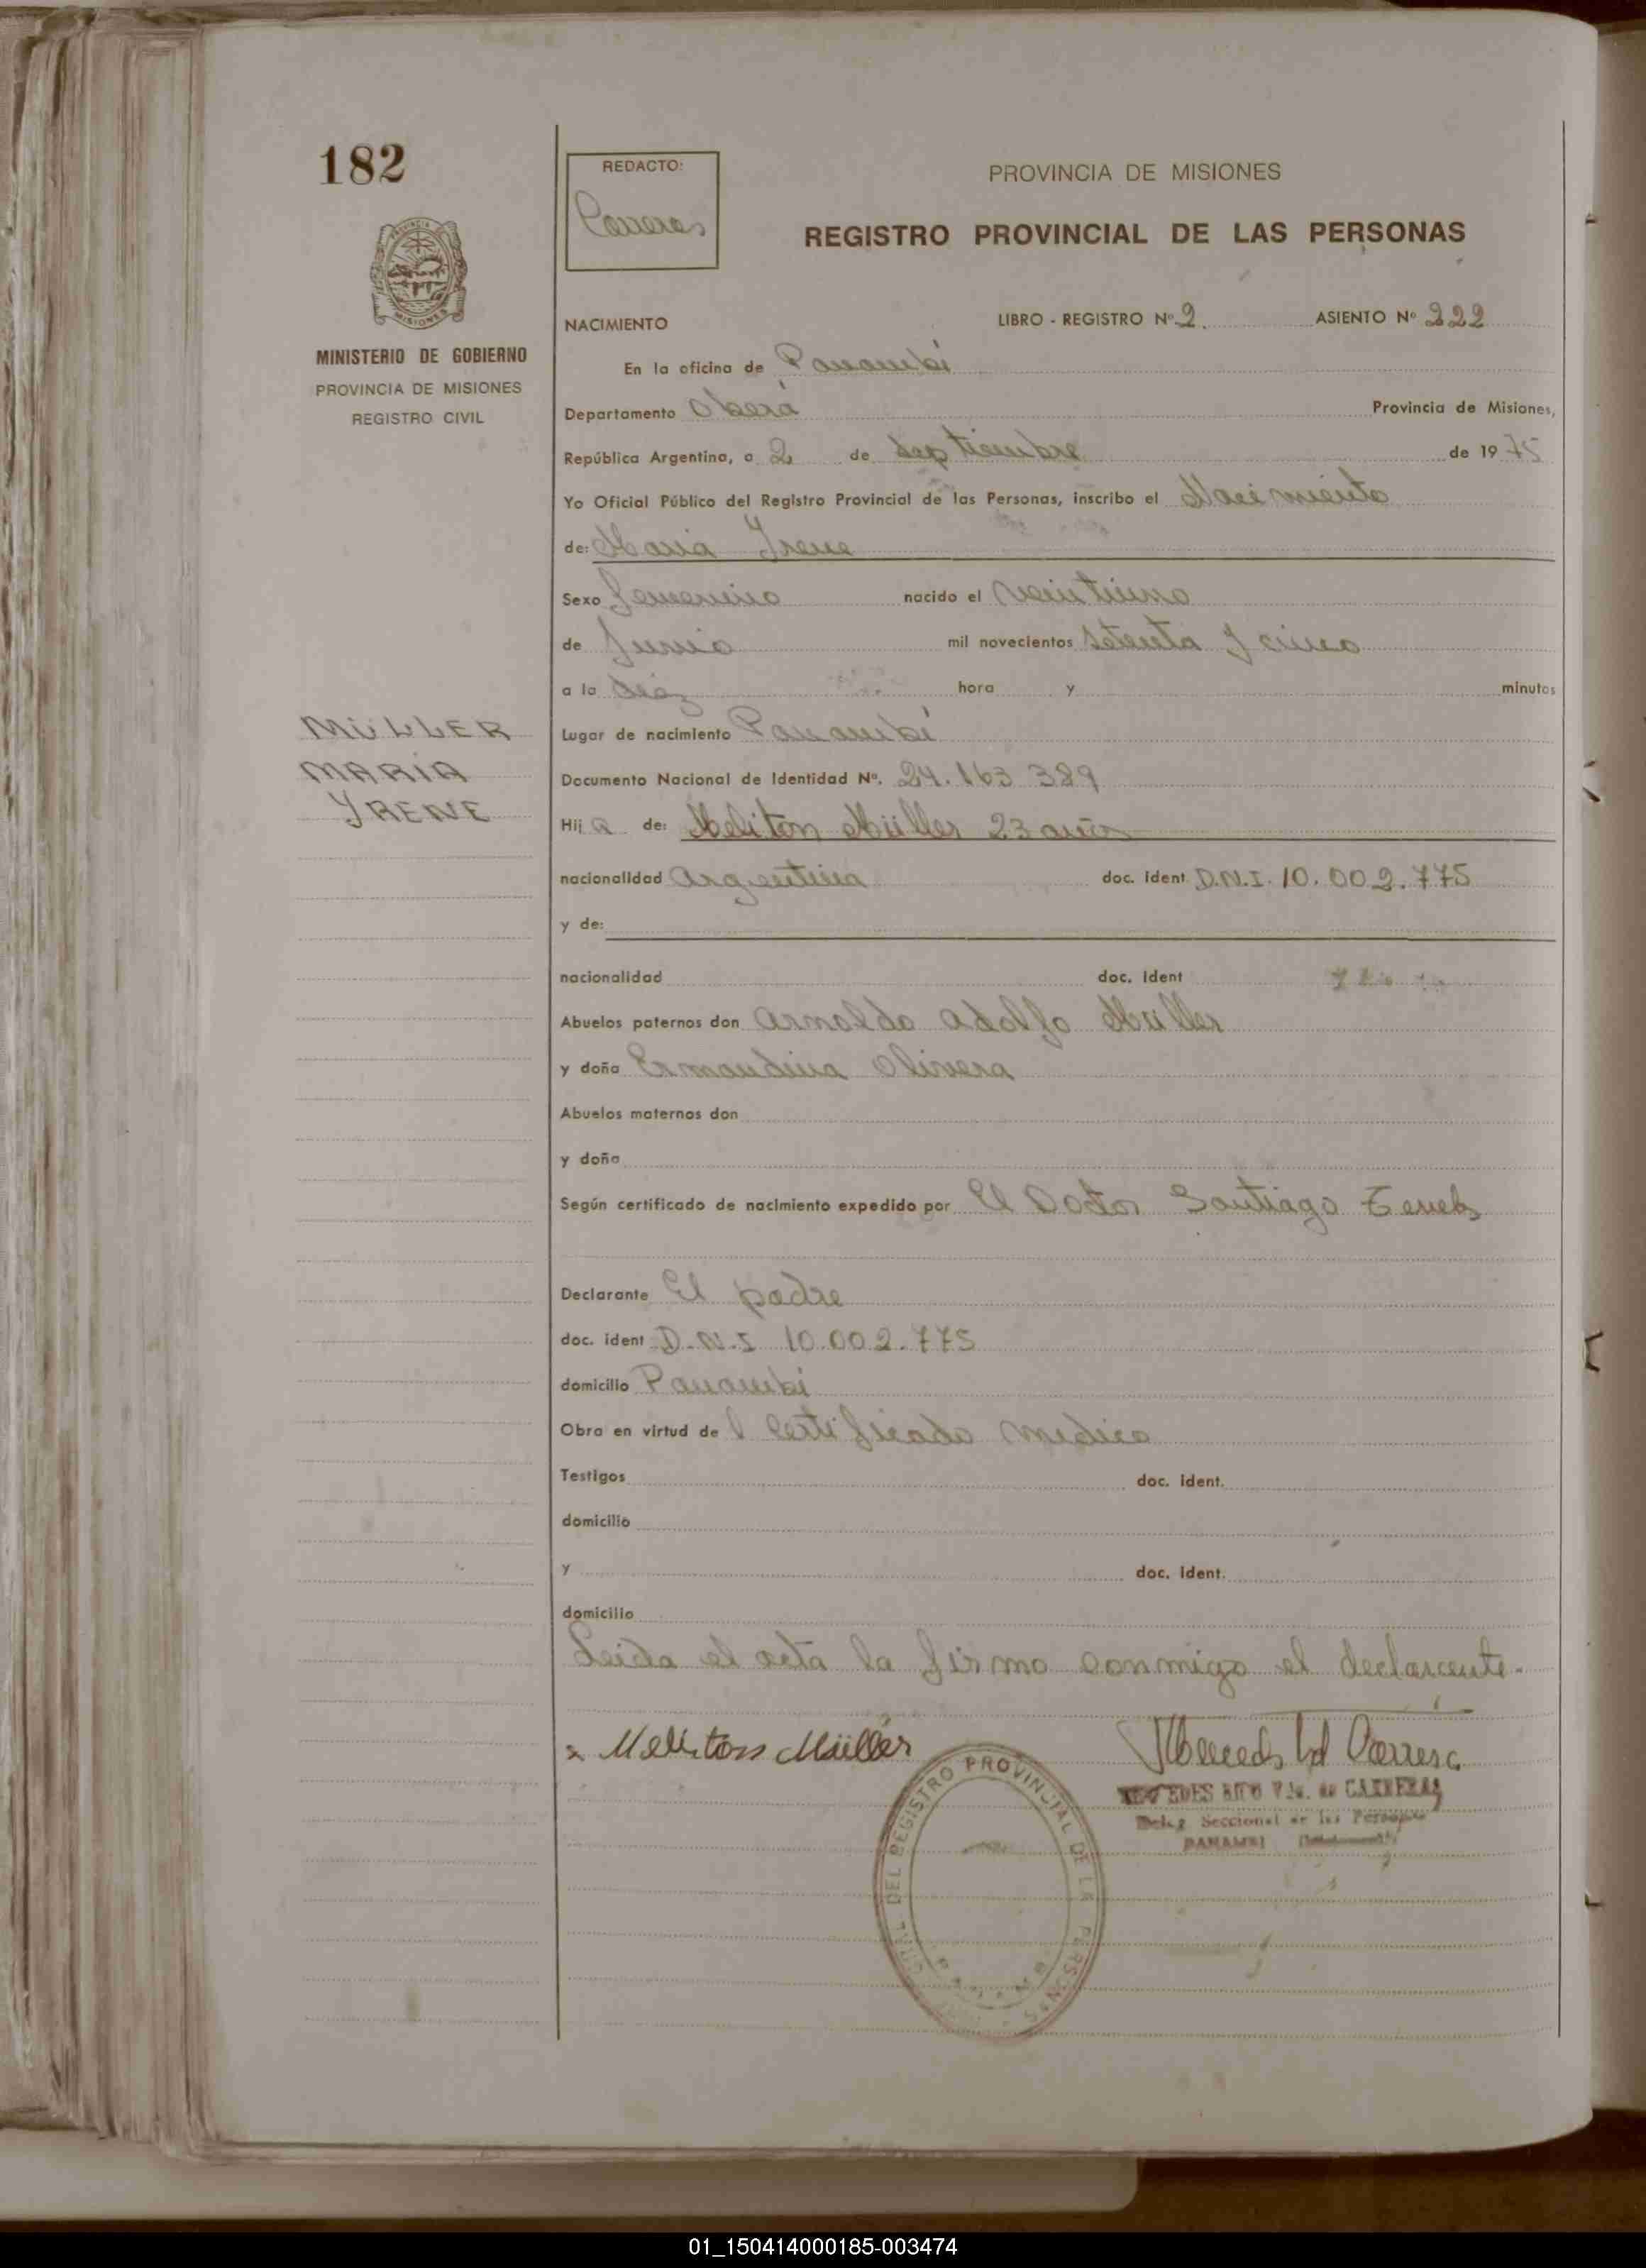 182
REDACTO:
Carreras
PROVINCIA DE MISIONES
REGISTRO PROVINCIAL DE LAS PERSONAS
MISIONES
MINISTERIO DE GOBIERNO
PROVINCIA DE MISIONES
REGISTRO CIVIL
NACIMIENTO
LIBRO - REGISTRO Nº 2. ASIENTO Nº 222
En la oficina de Panambí
Departamento Oberá Provincia de Misiones,
República Argentina, a 2 de septiembre de 1975
Yo Oficial Público del Registro Provincial de las Personas, inscribo el Nacimiento
de: Maria Irene
Sexo femenino nacido el veintiuno
de Junio mil novecientos setenta y cinco
a la diez hora y minutos
MÜLLER
MARIA
YRENE
Lugar de nacimiento Panambí
Documento Nacional de Identidad Nº. 24.163 389
Hija de: Meliton Müller 23 años
nacionalidad Argentina doc. ident D.N.I. 10.002.775
y de:
nacionalidad doc. ident
Abuelos paternos don Arnoldo Adolfo Müller
y doña Ermandina Olivera
Abuelos maternos don
y doña
Según certificado de nacimiento expedido por El Doctor Santiago
Declarante El padre
doc. ident D.N.I 10.002.775
domicilio Panambi
Obra en virtud del certificado medico
Testigos doc. ident.
domicilio
y doc. ident.
domicilio
Leida el acta la firmo conmigo el declarante.
Meliton Müller
DEL REGISTRO PROVINCIAL DE LA PERSONAS
Vda. de CARRERAS
Seccional de las Personas
PANAMBI
01_150414000185-003474